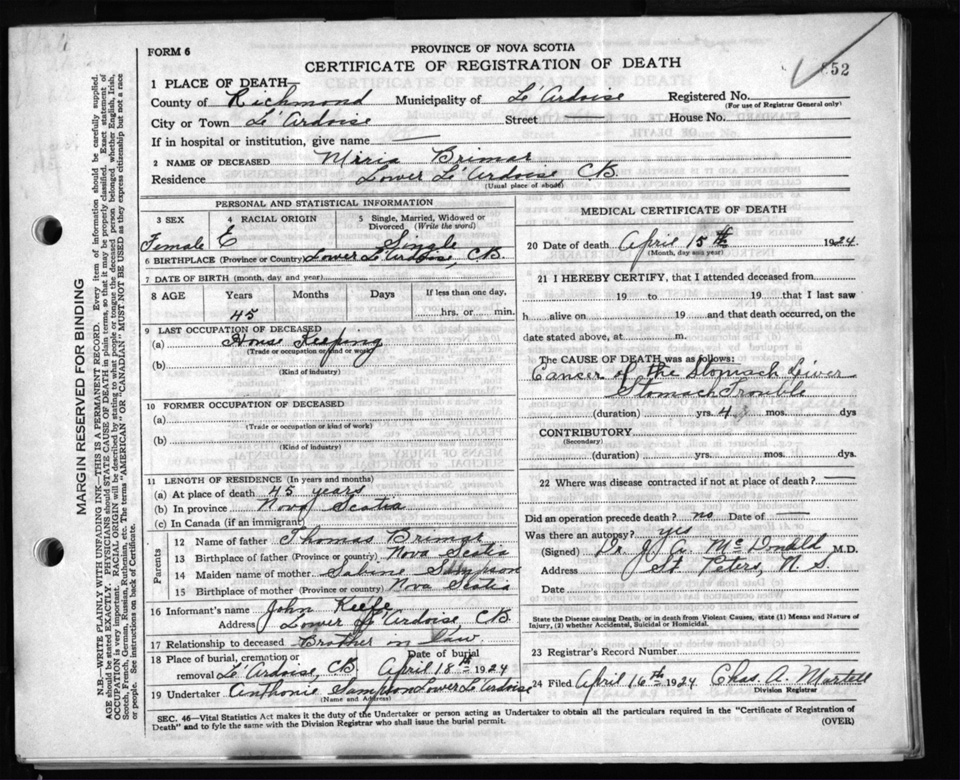 FORM 6
PROVINCE OF NOVA SCOTIA
CERTIFICATE OF REGISTRATION OF DEATH
52
1 PLACE OF DEATH—
County of Richmond Municipality of Le' Ardoise Registered No.
(For use of Registrar General only)
City or Town Le' Ardoise Street House No.
If in hospital or institution, give name —
2 NAME OF DECEASED Miria Brimar
Residence Lower Le' Ardoise C.B.
(Usual place of abode)
PERSONAL AND STATISTICAL INFORMATION
3 SEX 4 RACIAL ORIGIN 5 Single, Married, Widowed or Divorced (Write the word)
Female Single
6 BIRTHPLACE (Province or Country) Lower Le' Ardoise, C.B.
7 DATE OF BIRTH (month, day and year)
8 AGE Years Months Days If less than one day,
45 hrs. or min.
9 LAST OCCUPATION OF DECEASED
(a) House Keeping
(Trade or occupation or kind or work)
(b)
(Kind of industry)
10 FORMER OCCUPATION OF DECEASED
(a)
(Trade or occupation or kind of work)
(b)
(Kind of Industry)
11 LENGTH OF RESIDENCE (In years and months)
(a) At place of death 45 years
(b) In province Nova Scotia
(c) In Canada (if an immigrant)
Parents
12 Name of father Thomas Brimar
13 Birthplace of father (Province or country) Nova Scotia
14 Maiden name of mother Sabine Sampson
15 Birthplace of mother (Province or country) Nova Scotia
16 Informant's name John Keefe
Address Lower Le' Ardoise, C.B.
17 Relationship to deceased Brother in law.
18 Place of burial, cremation or removal Le' Ardoise, C.B. Date of burial April 18th 1924
19 Undertaker Anthonie Sampson Lower Le' Ardoise
(Name and Address)
MEDICAL CERTIFICATE OF DEATH
20 Date of death April 15th 1924.
(Month, day and year)
21 I HEREBY CERTIFY, that I attended deceased from
19 to 19 that I last saw
h alive on 19 and that death occurred, on the
date stated above, at m.
The CAUSE OF DEATH was as follows:
Cancer of the Stomach Liver
Stomach Trouble
(duration) yrs. 4 mos. dys
CONTRIBUTORY
(Secondary)
(duration) yrs. mos. dys
22 Where was disease contracted if not at place of death? —
Did an operation precede death? no Date of —
Was there an autopsy? yes
(Signed) Dr. J. A. McDonald M.D.
Address St Peters, N. S.
Date
State the Disease causing Death, or in Death from Violent Causes, state (1) Means and Nature of Injury, (2) whether Accidental, Suicidal or Homicidal.
23 Registrar's Record Number
24 Filed April 16th 1924 Chas. A. Martell
Division Registrar
SEC. 46—Vital Statistics Act makes it the duty of the Undertaker or person acting as Undertaker to obtain all the particulars required in the "Certificate of Registration of
Death" and to fyle the same with the Division Registrar who shall issue the burial permit. (OVER)
MARGIN RESERVED FOR BINDING
N.B.—WRITE PLAINLY WITH UNFADING INK—THIS IS A PERMANENT RECORD. Every item of information should be carefully supplied.
AGE should be stated EXACTLY. PHYSICIANS should STATE CAUSE OF DEATH in plain terms, so that it may be properly classified. Exact statement of
OCCUPATION is very important. RACIAL ORIGIN will be described by stating to what people or tongue the deceased person belonged whether English, Irish,
Scotch, French, German, Russian, Ruthenian, etc. The terms "AMERICAN" or "CANADIAN" MUST NOT BE USED as they express citizenship but not a race
or people. See instructions on back of Certificate.